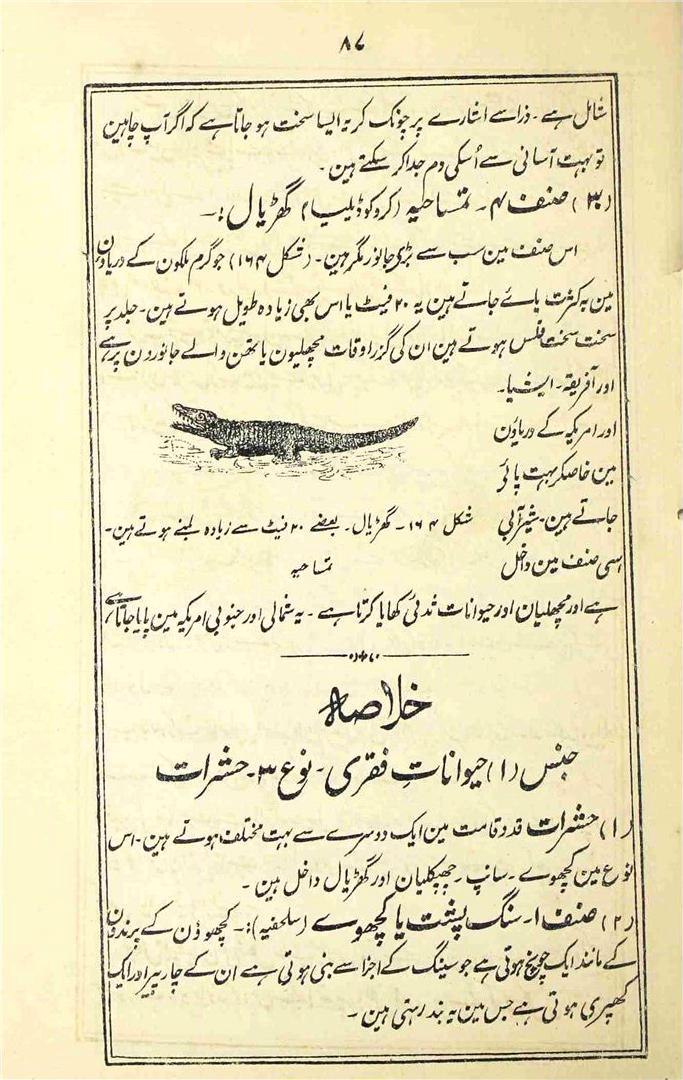 ۸۷
شامل ہے ۔ ذرا سے اشارے پر چونک کر یہ ایسا سخت ہو جاتا ہے کہ اگر آپ چاہین
تو بہت آسانی سے اُسکی دم جدا کر سکتے ہین ۔
(۳) صنف ۴ ۔ تمساحیہ (کروکوڈیلیا) گھڑیال :۔
اس صنف مین سب سے بڑی جانور مگر ہین ۔ (شکل ۱۶۴) جو گرم ملکون کے دریاؤن
مین بہ کثرت پائے جاتے ہین یہ ۲۰ فیٹ یا اس بھی زیادہ طویل ہوتے ہین ۔ جلد پر
سخت سخت فلس ہوتے ہین ان کی گزر اوقات مچھلیون یا تھن والے جانورون پر ہے
اور آفریقہ ۔ ایشیا ۔
اور امریکہ کے دریاؤن
مین خاصکر بہت پائی
جاتے ہین ۔ شیر آبی
شکل ۱۶۴ ۔ گھڑیال ۔ بعضے ۲۰ فیٹ سے زیادہ لمبے ہوتے ہین ۔
اسی صنف مین داخل
تمساحیہ
ہے اور مچھلیان اور حیوانات ثدئی کھایا کرتا ہے ۔ یہ شمالی اور جنوبی امریکہ مین پایا جاتا ہے
خلاصہ
جنس (۱) حیواناتِ فقری ۔ نوع ۳ ۔ حشرات
(۱) حشرات قد و قامت مین ایک دوسرے سے بہت مختلف ہوتے ہین ۔ اس
نوع مین کچھوے ۔ سانپ ۔ چھپکلیان اور گھڑیال داخل ہین ۔
(۲) صنف ۱ ۔ سنگ پشت یا کچھوے (سلحفیہ) :۔ کچھوؤن کے پرندون
کے مانند ایک چونچ ہوتی ہے جو سینگ کے اجزا سے بنی ہوتی ہے ان کے چار پیر اور ایک
کھپری ہوتی ہے جس مین یہ بند رہتی ہین ۔